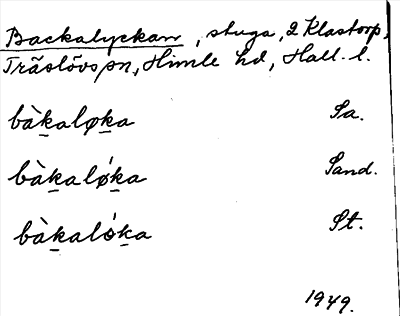 Backalyckan, stuga, 2 Klastorp,
Träslövs sn, Himle hd, Hall. l.
bàk̲aløk̲a Sa.
bàk̲alǿk̲a Sand.
bàk̲alók̲a St.
1949.